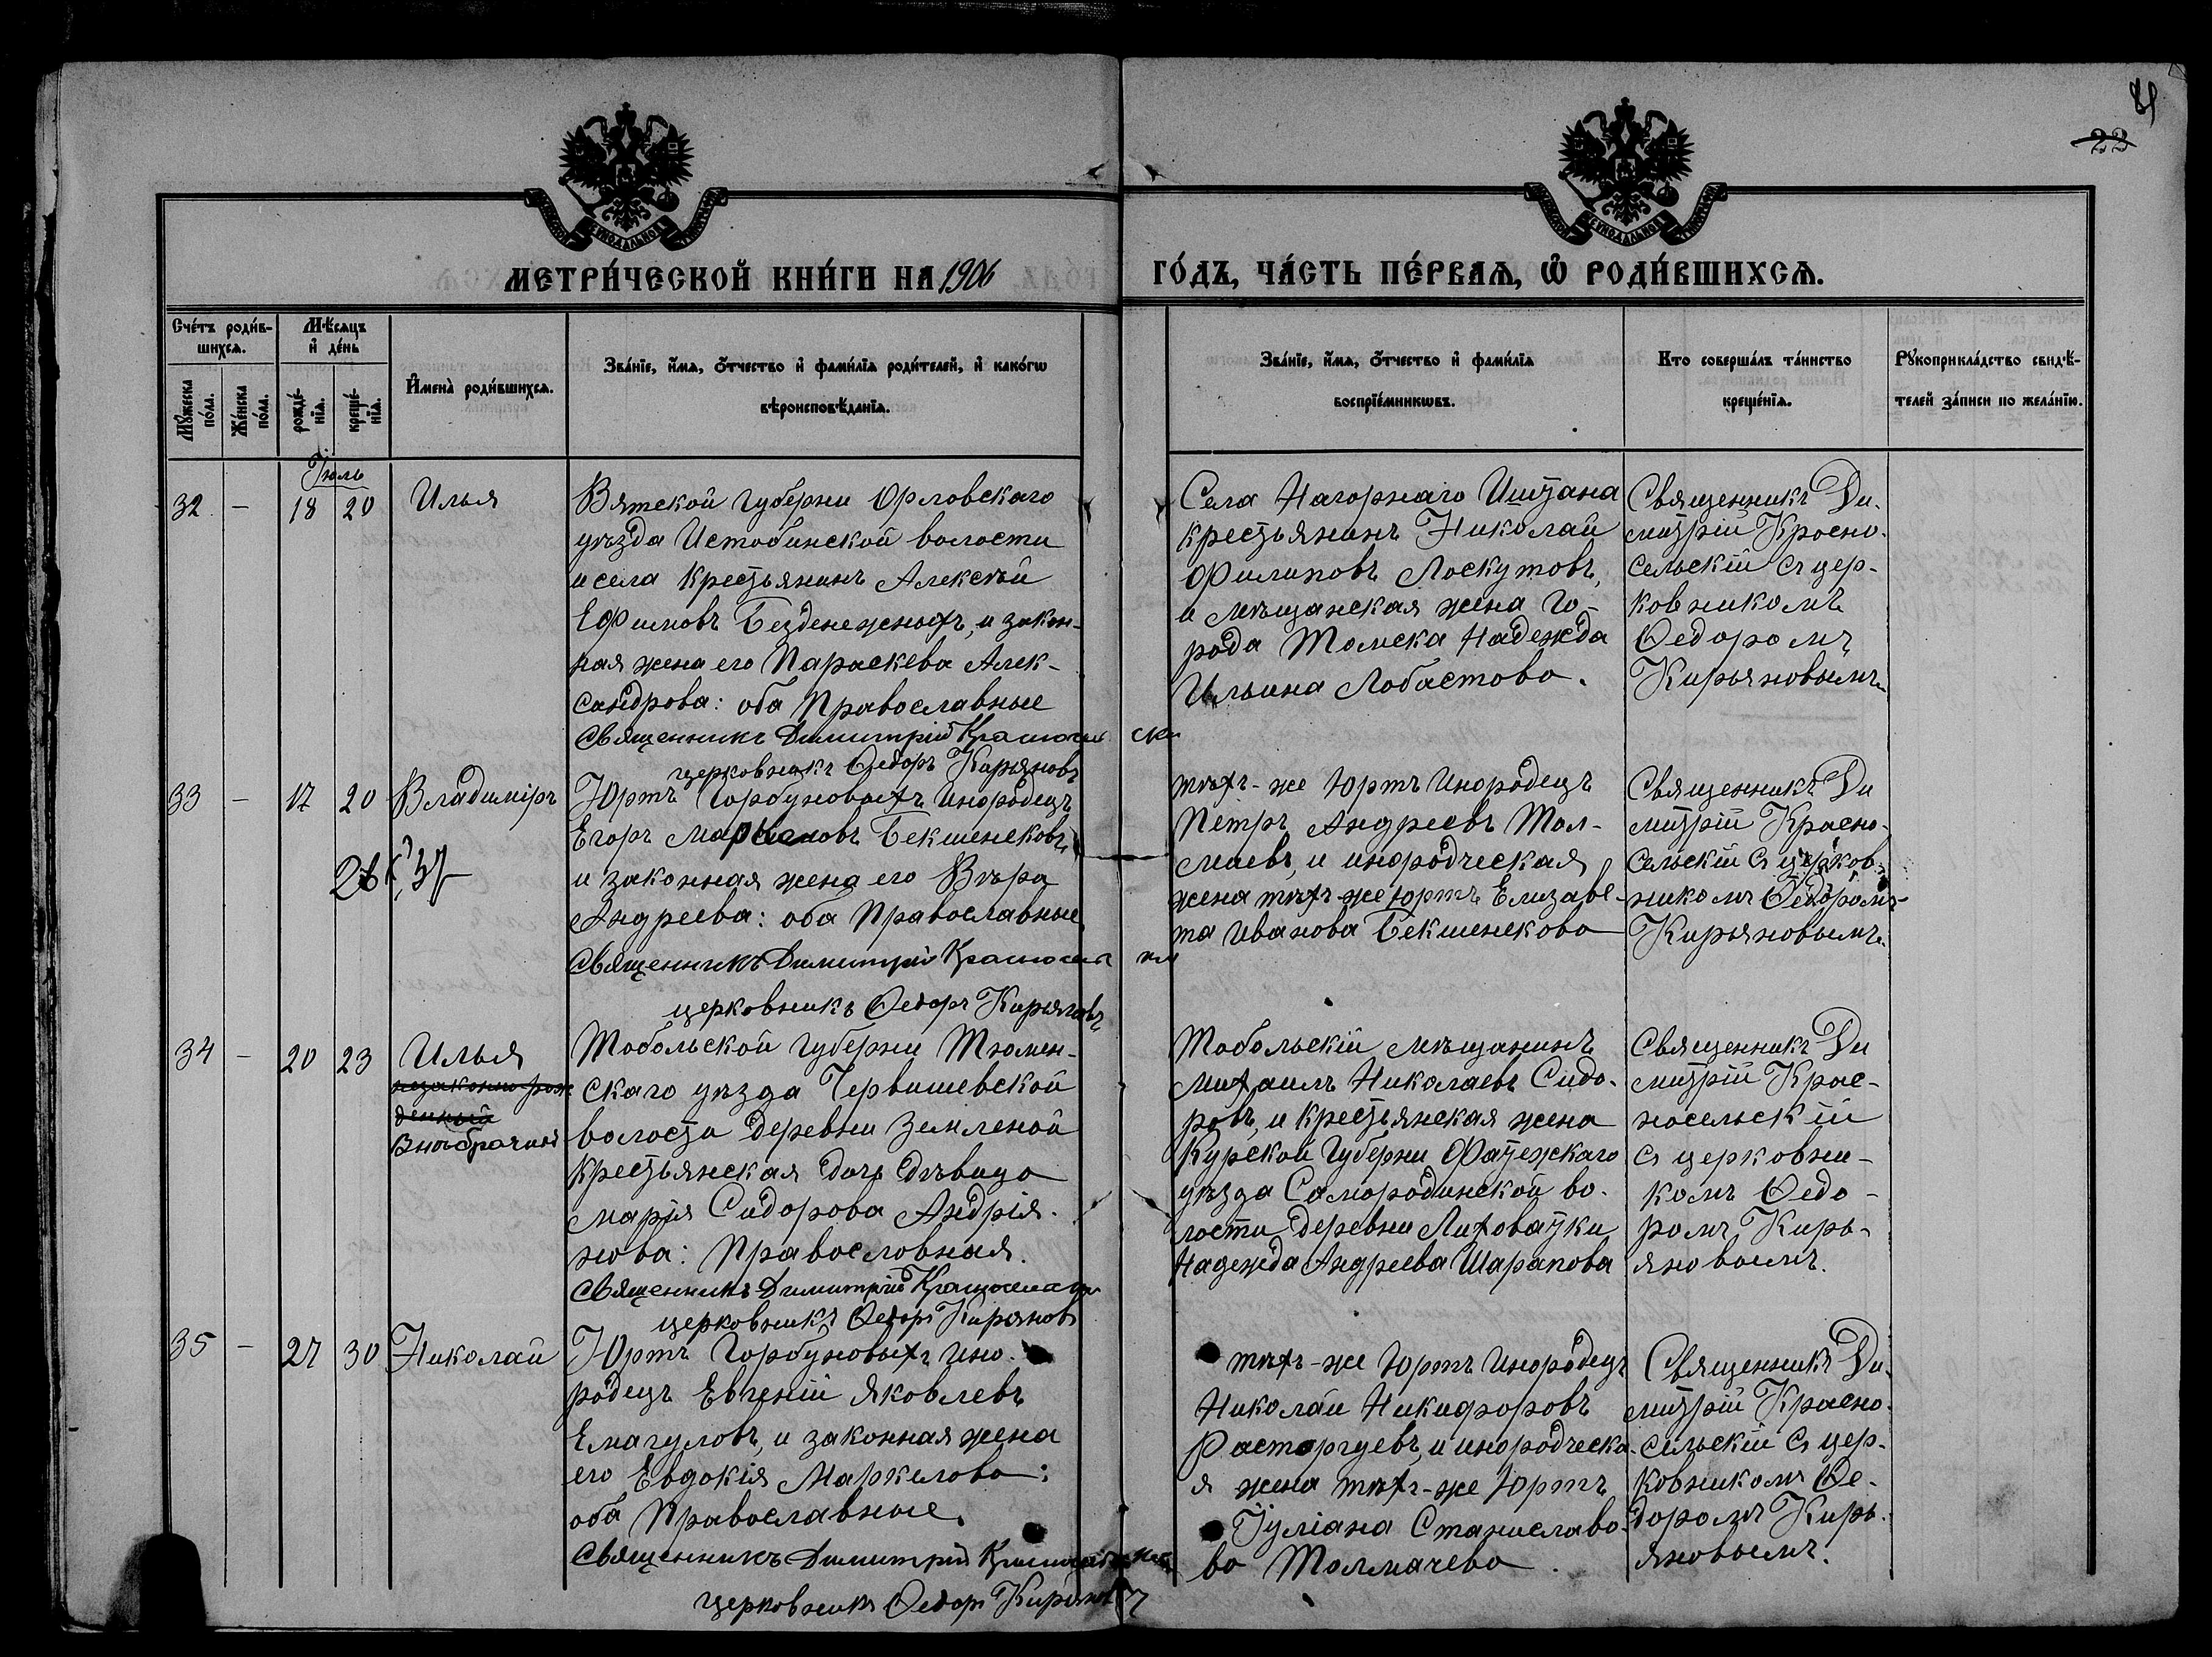 21
22
МЕТРИ́ЧЕСКОЙ КНИ́ГИ НА 1906 ГО́ДЪ, ЧА́СТЬ ПЕ́РВАѦ, Ѽ РОДИ́ВШИХСѦ.
Сче́тъ роди́в-
шихсѧ.
Мꙋ́жеска по́ла.
Же́нска по́ла.
Мѣ́сѧцъ
и҆ де́нь
рожде́-
нїѧ.
креще́-
нїѧ.
И҆мена̀ роди́вшихсѧ.
Зва́нїе, и҆́мѧ, ѻ҆́тчество и҆ фами́лїѧ роди́телей, и҆ како́гѡ
вѣроисповѣ́данїѧ.
Зва́нїе, и҆́мѧ, ѻ҆́тчество и҆ фами́лїѧ
воспрїе́мникѡвъ.
Кто соверша́лъ та́инство
креще́нїѧ.
Рꙋкоприкла́дство свидѣ́-
телей за́писи по жела́нїю.
Іюль
32 - 18 20 Илья
Вятской губерни Орловскаго
уѣзда Истобинской волости
и села крестьянинъ Алексѣй
Ефимовъ Безденежныхъ, и закон-
ная жена его Параскева Алек-
сандрова: оба Православные
Священникъ Димитрій Красносельскій
церковникъ Ѳедоръ Кирьяновъ
Села Нагорнаго Иштана
крестьянинъ Николай
Филиповъ Лоскутовъ,
и мѣщанская жена го-
рода Томска Надежда
Ильина Лобастова.
Священникъ Ди-
митрій Красно-
сельскій съ цер-
ковникомъ
Ѳедоромъ
Кирьяновымъ
33 - 17 20 Владиміръ
Юртъ Горбуновыхъ инородецъ
Егоръ Бекшенековъ,
и законная жена его Вѣра
Андреева: оба Православные
Священникъ Димитрій Красносельскій
церковникъ Ѳедоръ Кирьяновъ
тѣхъ-же Юртъ инородецъ
Петръ Андреевъ Тол-
маевъ, и инородческая
жена тѣхъ-же Юртъ Елизаве-
та Иванова Бекшенекова
Священникъ Ди
митрій Красно-
сельскій съ церков-
никомъ Ѳедоромъ
Кирьяновымъ.
34 - 20 23 Илья
незаконно рож-
денный
внѣбрачный
Тобольской губерни Тюмен-
скаго уѣзда Червишевской
волости деревни Земленой
крестьянская дочь дѣвица
Марія Сидорова Андрія-
нова: Православная.
Священникъ Димитрій Красносельскій
церковникъ Ѳедоръ Кирьяновъ
Тобольскій мѣщанинъ
Михаилъ Николаевъ Сидо-
ровъ, и крестьянская жена
Курской губерни Фатежскаго
уѣзда Самородинской во-
лости деревни Лиховатки
Надежда Андреева Шарапова
Священникъ Ди
митрій Крас-
носельскій
съ церковни-
комъ Ѳедо-
ромъ Кирь-
яновымъ.
35 - 27 30 Николай
Юртъ Горбуновыхъ ино-
родецъ Евгеній Яковлевъ
Емагуловъ, и законная жена
его Евдокія Маркелова:
оба Православные.
Священникъ Димитрій Красносельскій
церковникъ Ѳедоръ Кирьяновъ
тѣхъ-же Юртъ инородецъ
Николай Никифоровъ
Расторгуевъ, и инородческа-
я жена тѣхъ-же Юртъ
Іуліана Станиславо-
ва Толмачева.
Священникъ Ди-
митрій Красно-
сельскій съ цер-
ковникомъ Ѳе-
доромъ Кирь-
яновымъ.